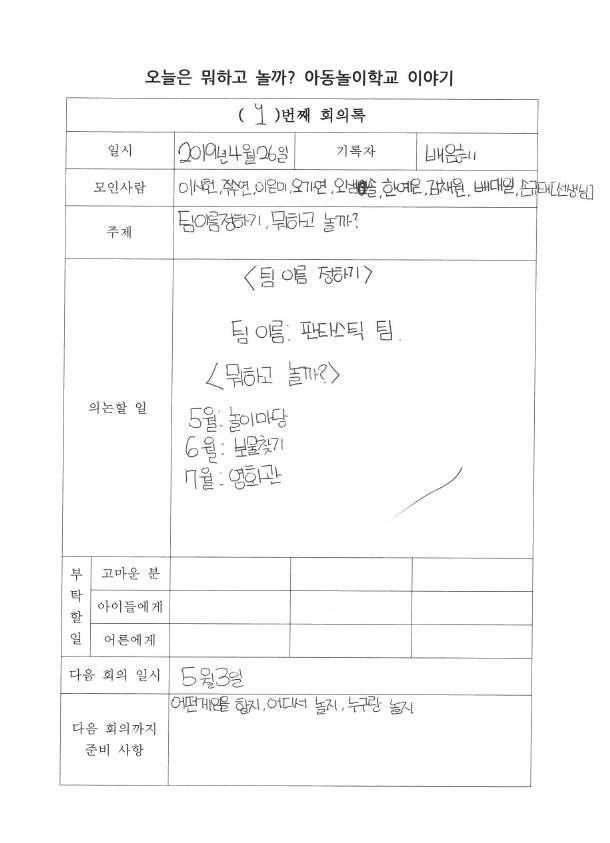 오늘은 뭐하고 놀까? 아동놀이학교 이야기
( 1 )번째 회의록
일시 2019년 4월 26일 기록자
모인사람 이시헌, 이은미, 오가연, 한예은, 김채원, 배대일, 손규태[선생님]
주제 팀이름정하기, 뭐하고 놀까?
의논할 일
<팀 이름 정하기>
팀 이름: 판타스틱 팀.
<뭐하고 놀까?>
5월: 놀이마당
6월: 보물찾기
7월: 영화관
부탁할 일
고마운 분
아이들에게
어른에게
다음 회의 일시 5월3일
다음 회의까지
준비 사항
어떤게임을 할지, 어디서 놀지, 누구랑 놀지